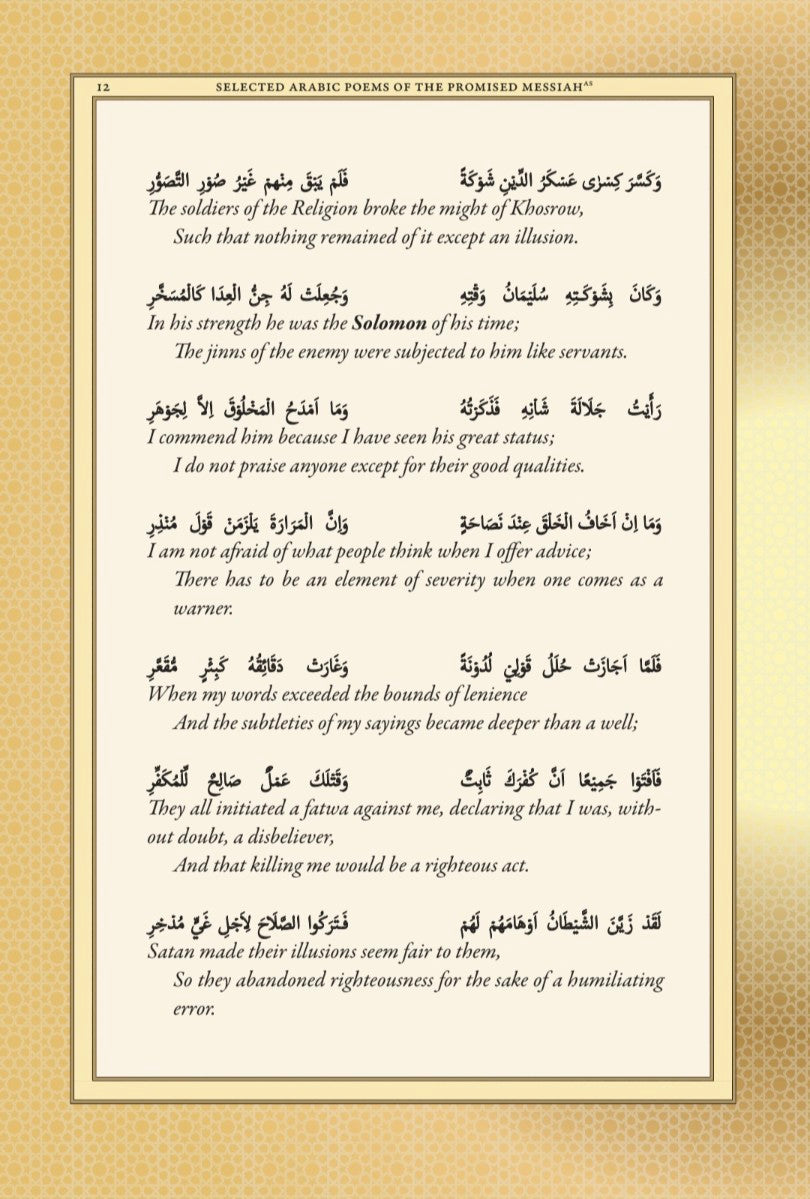 12
SELECTED ARABIC POEMS OF THE PROMISED MESSIAHAS
وَكَسَّرَ كِسْرٰى عَسْكَرُ الدِّيْنِ شَوْكَةً فَلَمْ يَبْقَ مِنْهمْ غَيْرُ صُوْرِ التَّصَوُّرِ
The soldiers of the Religion broke the might of Khosrow,
Such that nothing remained of it except an illusion.
وَكَانَ بِشَوْكَتِهِ سُلَيْمَانُ وَقْتِهِ وَجُعِلَتْ لَهُ جِنُّ الْعِدَا كَالْمُسَخَّرِ
In his strength he was the Solomon of his time;
The jinns of the enemy were subjected to him like servants.
رَأَيْتُ جَلَالَةَ شَأْنِهِ فَذَكَرْتُهُ وَمَا اَمْدَحُ الْمَخْلُوْقَ اِلاَّ لِجَوْهَرِ
I commend him because I have seen his great status;
I do not praise anyone except for their good qualities.
وَمَا اِنْ اَخَافُ الْخَلْقَ عِنْدَ نَصَاحَةٍ وَاِنَّ الْمَرَارَةَ يَلْزَمَنْ قَوْلَ مُنْذِرِ
I am not afraid of what people think when I offer advice;
There has to be an element of severity when one comes as a
warner.
فَلَمَّا اَجَازَتْ حُلَلُ قَوْلِيْ لُدُوْنَةً وَغَارَتْ دَقَائِقُهُ كَبِئْرٍ مُّقَعَّرِ
When my words exceeded the bounds of lenience
And the subtleties of my sayings became deeper than a well;
فَاَفْتَوْا جَمِيْعًا اَنَّ كُفْرَكَ ثَابِتٌ وَقَتْلَكَ عَمَلٌ صَالِحٌ لِّلْمُكَفِّرِ
They all initiated a fatwa against me, declaring that I was, with-
out doubt, a disbeliever,
And that killing me would be a righteous act.
لَقَدْ زَيَّنَ الشَّيْطَانُ اَوْهَامَهُمْ لَهُمْ فَتَرَكُوا الصَّلَاحَ لِاَجْلِ غَيٍّ مُدْخِرِ
Satan made their illusions seem fair to them,
So they abandoned righteousness for the sake of a humiliating
error.